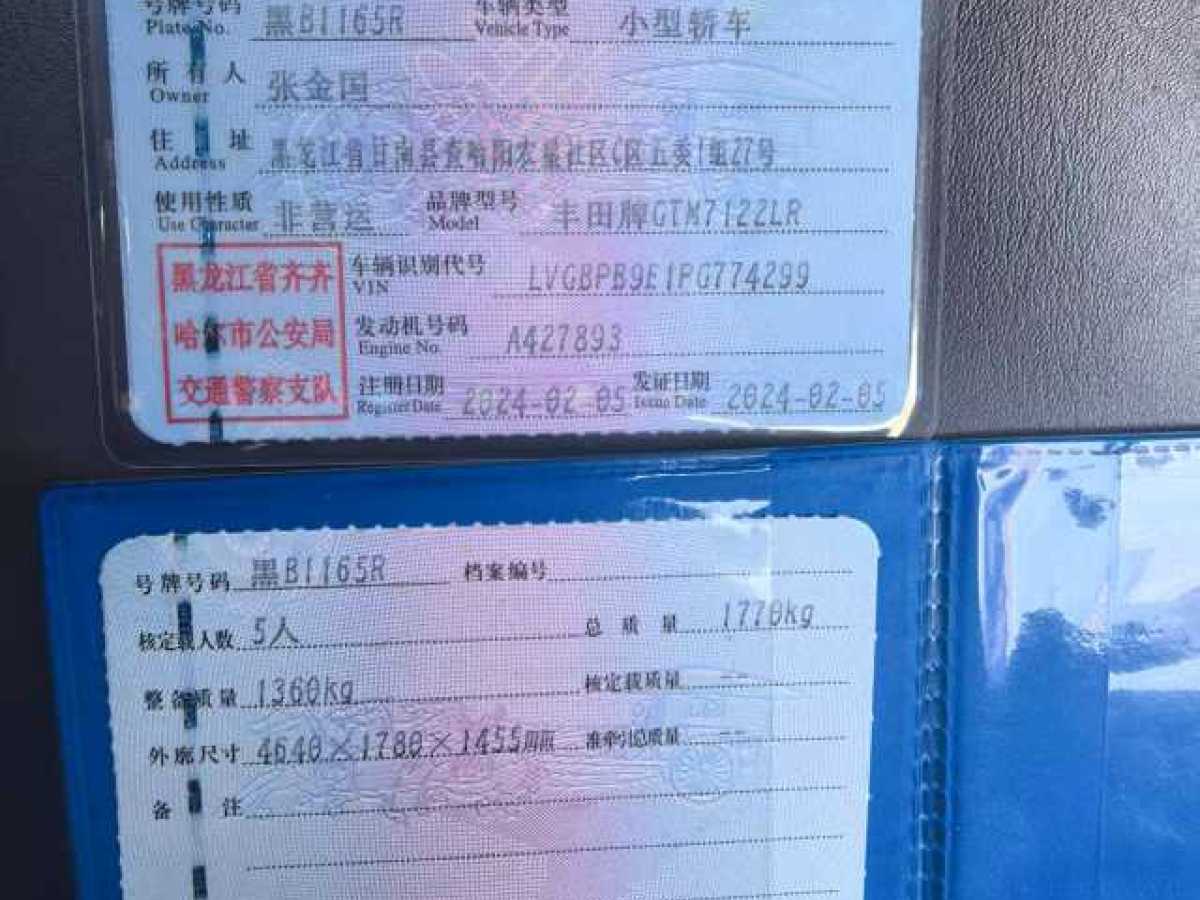 号牌号码 黑B1165R 车辆类型 小型轿车
Plate No. Vehicle Type
所有人 张金国
Owner
住址 黑龙江省甘南县查哈阳农垦社区C区五委1组27号
Address
使用性质 非营运 品牌型号 丰田牌GTM7122LR
Use Character Model
黑龙江省齐齐
哈尔市公安局
交通警察支队
车辆识别代号 LVGBPB9E1PG774299
VIN
发动机号码 A427893
Engine No.
注册日期 2024-02-05 发证日期 2024-02-05
Register Date Issue Date
号牌号码 黑B1165R 档案编号
核定载人数 5人 总质量 1770kg
整备质量 1360kg 核定载质量 --
外廓尺寸 4640×1780×1455mm 准牵引总质量 --
备注